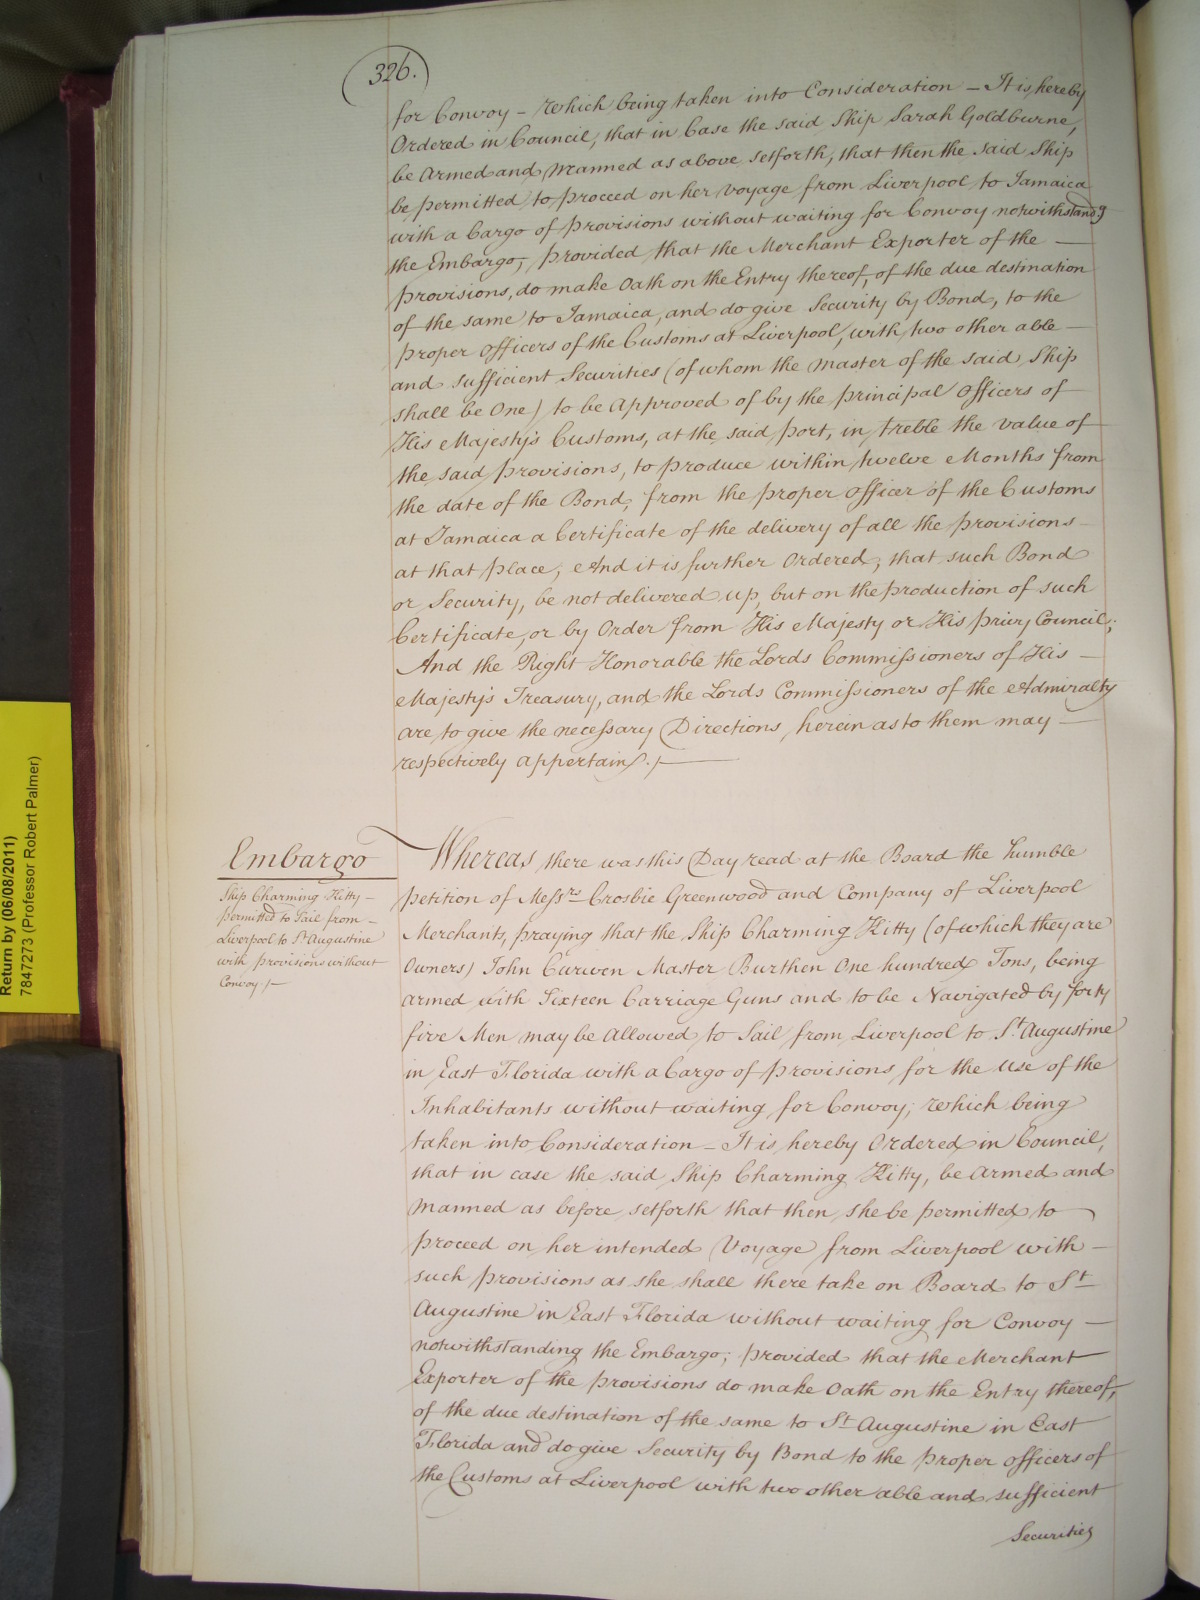 326.
for Convoy – Which being taken into Consideration – It is hereby
Ordered in Council, that in Case the said Ship Sarah Goldburne,
be Armed and Manned as above setforth, that then the said Ship
be permitted to proceed on her Voyage from Liverpool to Jamaica
with a Cargo of Provisions without waiting for Convoy notwithstandg
the Embargo; Provided that the Merchant Exporter of the —
Provisions, do make Oath on the Entry thereof, of the due destination
of the same to Jamaica, and do give Security by Bond, to the
Proper Officers of the Customs at Liverpool, with two other able —
and sufficient Securities (of whom the Master of the said Ship
shall be One) to be Approved of by the principal Officers of
His Majesty's Customs, at the said Port, in treble the value of
the said Provisions, to produce within twelve Months from
the date of the Bond, from the Proper Officer of the Customs
at Jamaica a Certificate of the delivery of all the Provisions —
at that place; And it is further Ordered, that such Bond
or Security, be not delivered up, but on the production of such
Certificate, or by Order from His Majesty or His Privy Council;
And the Right Honorable the Lords Commissioners of His —
Majesty's Treasury, and the Lords Commissioners of the Admiralty
are to give the necessary Directions, herein as to them may —
respectively appertain. /—
Embargo
Ship Charming Kitty —
permitted to Sail from —
Liverpool to St Augustine
with provisions without
Convoy /—
Whereas there was this Day read at the Board the humble
Petition of Messrs Crosbie Greenwood and Company of Liverpool
Merchants, praying that the Ship Charming Kitty (of which they are
Owners) John Curwen Master Burthen One hundred Tons, being
armed with Sixteen Carriage Guns and to be Navigated by forty
five Men may be Allowed to Sail from Liverpool to St Augustine
in East Florida with a Cargo of Provisions for the Use of the
Inhabitants without waiting for Convoy; Which being
taken into Consideration – It is hereby Ordered in Council,
that in case the said Ship Charming Kitty, be Armed and
Manned as before setforth that then she be permitted to
proceed on her intended Voyage from Liverpool with —
such Provisions as she shall there take on Board to St
Augustine in East Florida without waiting for Convoy —
notwithstanding the Embargo; provided that the Merchant
Exporter of the Provisions do make Oath on the Entry thereof,
of the due destination of the same to St Augustine in East
Florida and do give Security by Bond to the Proper Officers of
the Customs at Liverpool with two other able and sufficient
Securities
Return by (06/08/2011)
7847273 (Professor Robert Palmer)